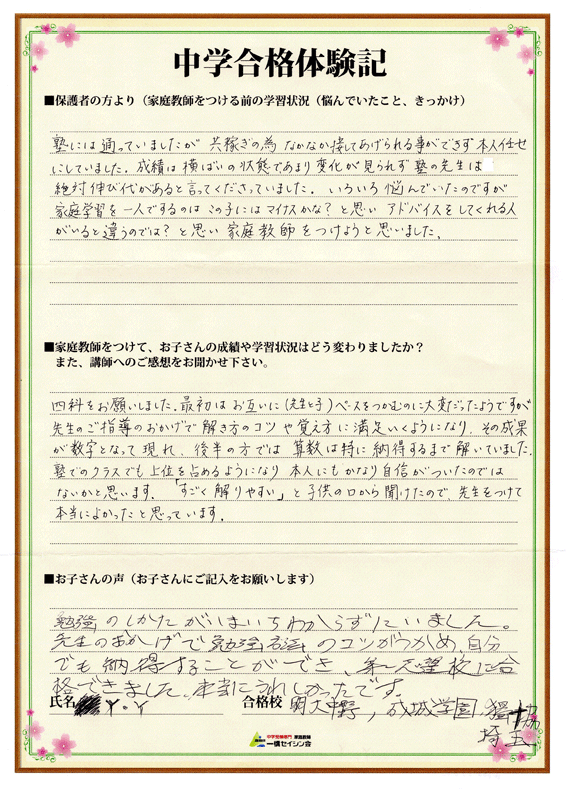 中学合格体験記
■保護者の方より（家庭教師をつける前の学習状況（悩んでいたこと、きっかけ）
塾には通っていましたが 共稼ぎの為 なかなか接してあげられる事ができず本人任せ
にしていました。成績は横ばいの状態であまり変化が見られず塾の先生は
絶対伸び代があると言ってくださっていました。いろいろ悩んでいたのですが
家庭学習を一人でするのは この子には マイナスかな？と思い アドバイスをしてくれる人
がいると違うのでは？と思い 家庭教師をつけようと思いました。
■家庭教師をつけて、お子さんの成績や学習状況はどう変わりましたか？
また、講師へのご感想をお聞かせ下さい。
四科をお願いしました。最初はお互いに（先生と子）ペースをつかむのに大変だったようですが
先生のご指導のおかげで解き方のコツや覚え方に満足いくようになり、その成果
が数字となって現れ、後半の方では 算数は特に納得するまで解いていました。
塾でのクラスでも上位を占めるようになり 本人にもかなり自信がついたのでは
ないかと思います。「すごく解りやすい」と子供の口から聞けたので、先生をつけて
本当によかったと思っています。
■お子さんの声（お子さんにご記入をお願いします）
勉強のしかたがいまいちわからずにいました。
先生のおかげで勉強方法のコツがつかめ、自分
でも納得することができ、第一志望校に合
格できました。本当にうれしかったです。
氏名 Y・Y 合格校 明大中野，成城学園，獨協
埼玉
中学受験専門 家庭教師
一橋セイシン会